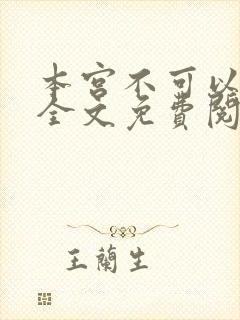 本宫不可以
全文免费阅
王蘭生